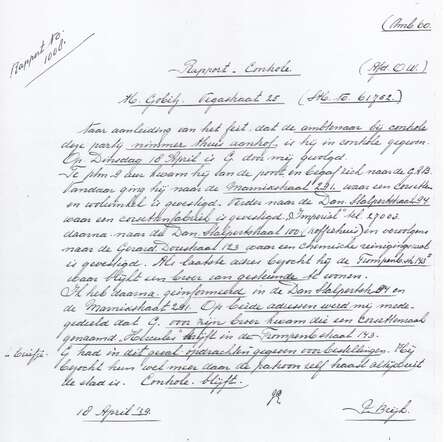 (Amb. 60.
Rapport No.
1000.
Rapport - Controle (Afd. O.W.)
M. Gobitz. Vegastraat 25 (Stk. No. 61702)
Naar aanleiding van het feit, dat de ambtenaar bij controle
deze party nimmer thuis aantrof is hij in controle gegeven.
Op Dinsdag 18 April is G. door mij gevolgd.
Te plm. 9 uur kwam hij van de poort en begaf zich naar de G.A.B.
Vandaar ging hij naar de Marniastraat 291. waar een Corsetten
en wolwinkel is gevestigd. Verder naar de Dan. Stalpertstraat 94
waar een corsettenfabriek is gevestigd, "Imperial" tel. 27003.
daarna naar de Dan. Stalpertstraat 100 en vervolgens
naar de Gerard Doustraat 123 waar een chemische reiniging
is gevestigd. Als laatste adres bezocht hij de Trompenb.str. 143
waar blijkt een broer van gesteunde te wonen.
Ik heb daarna geïnformeerd in de Dan Stalpertstr. 94 en
de Marniastraat 291. Op beide adressen werd mij mede-
gedeeld dat G. voor zijn broer kwam die een Corsettenzaak
genaamd "Hercules" drijft in de Trompenb.straat 143.
G had in dit geval opdrachten gegeven voor bestellingen. Hij
bezocht hun wel meer daar de patroon zelf haast altijd uit
de stad is. Controle blijft.
18 April '39.